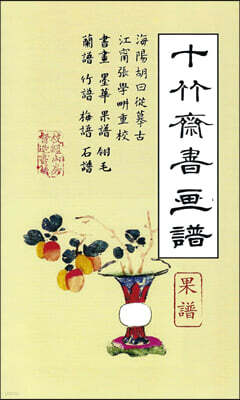 十竹齋書画譜
果譜
海陽胡曰從摹古
江甯張學畊重校
書畫 墨華 果譜 翎毛
蘭譜 竹譜 梅譜 石譜